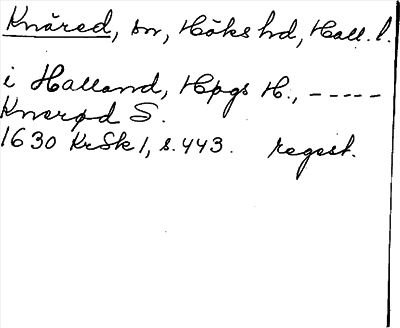 Knäred, sn, Höks hd, Hall. l.
i Halland, Hpgs H., -----
Knerød S.
1630 KrSk 1, s. 443. regest.